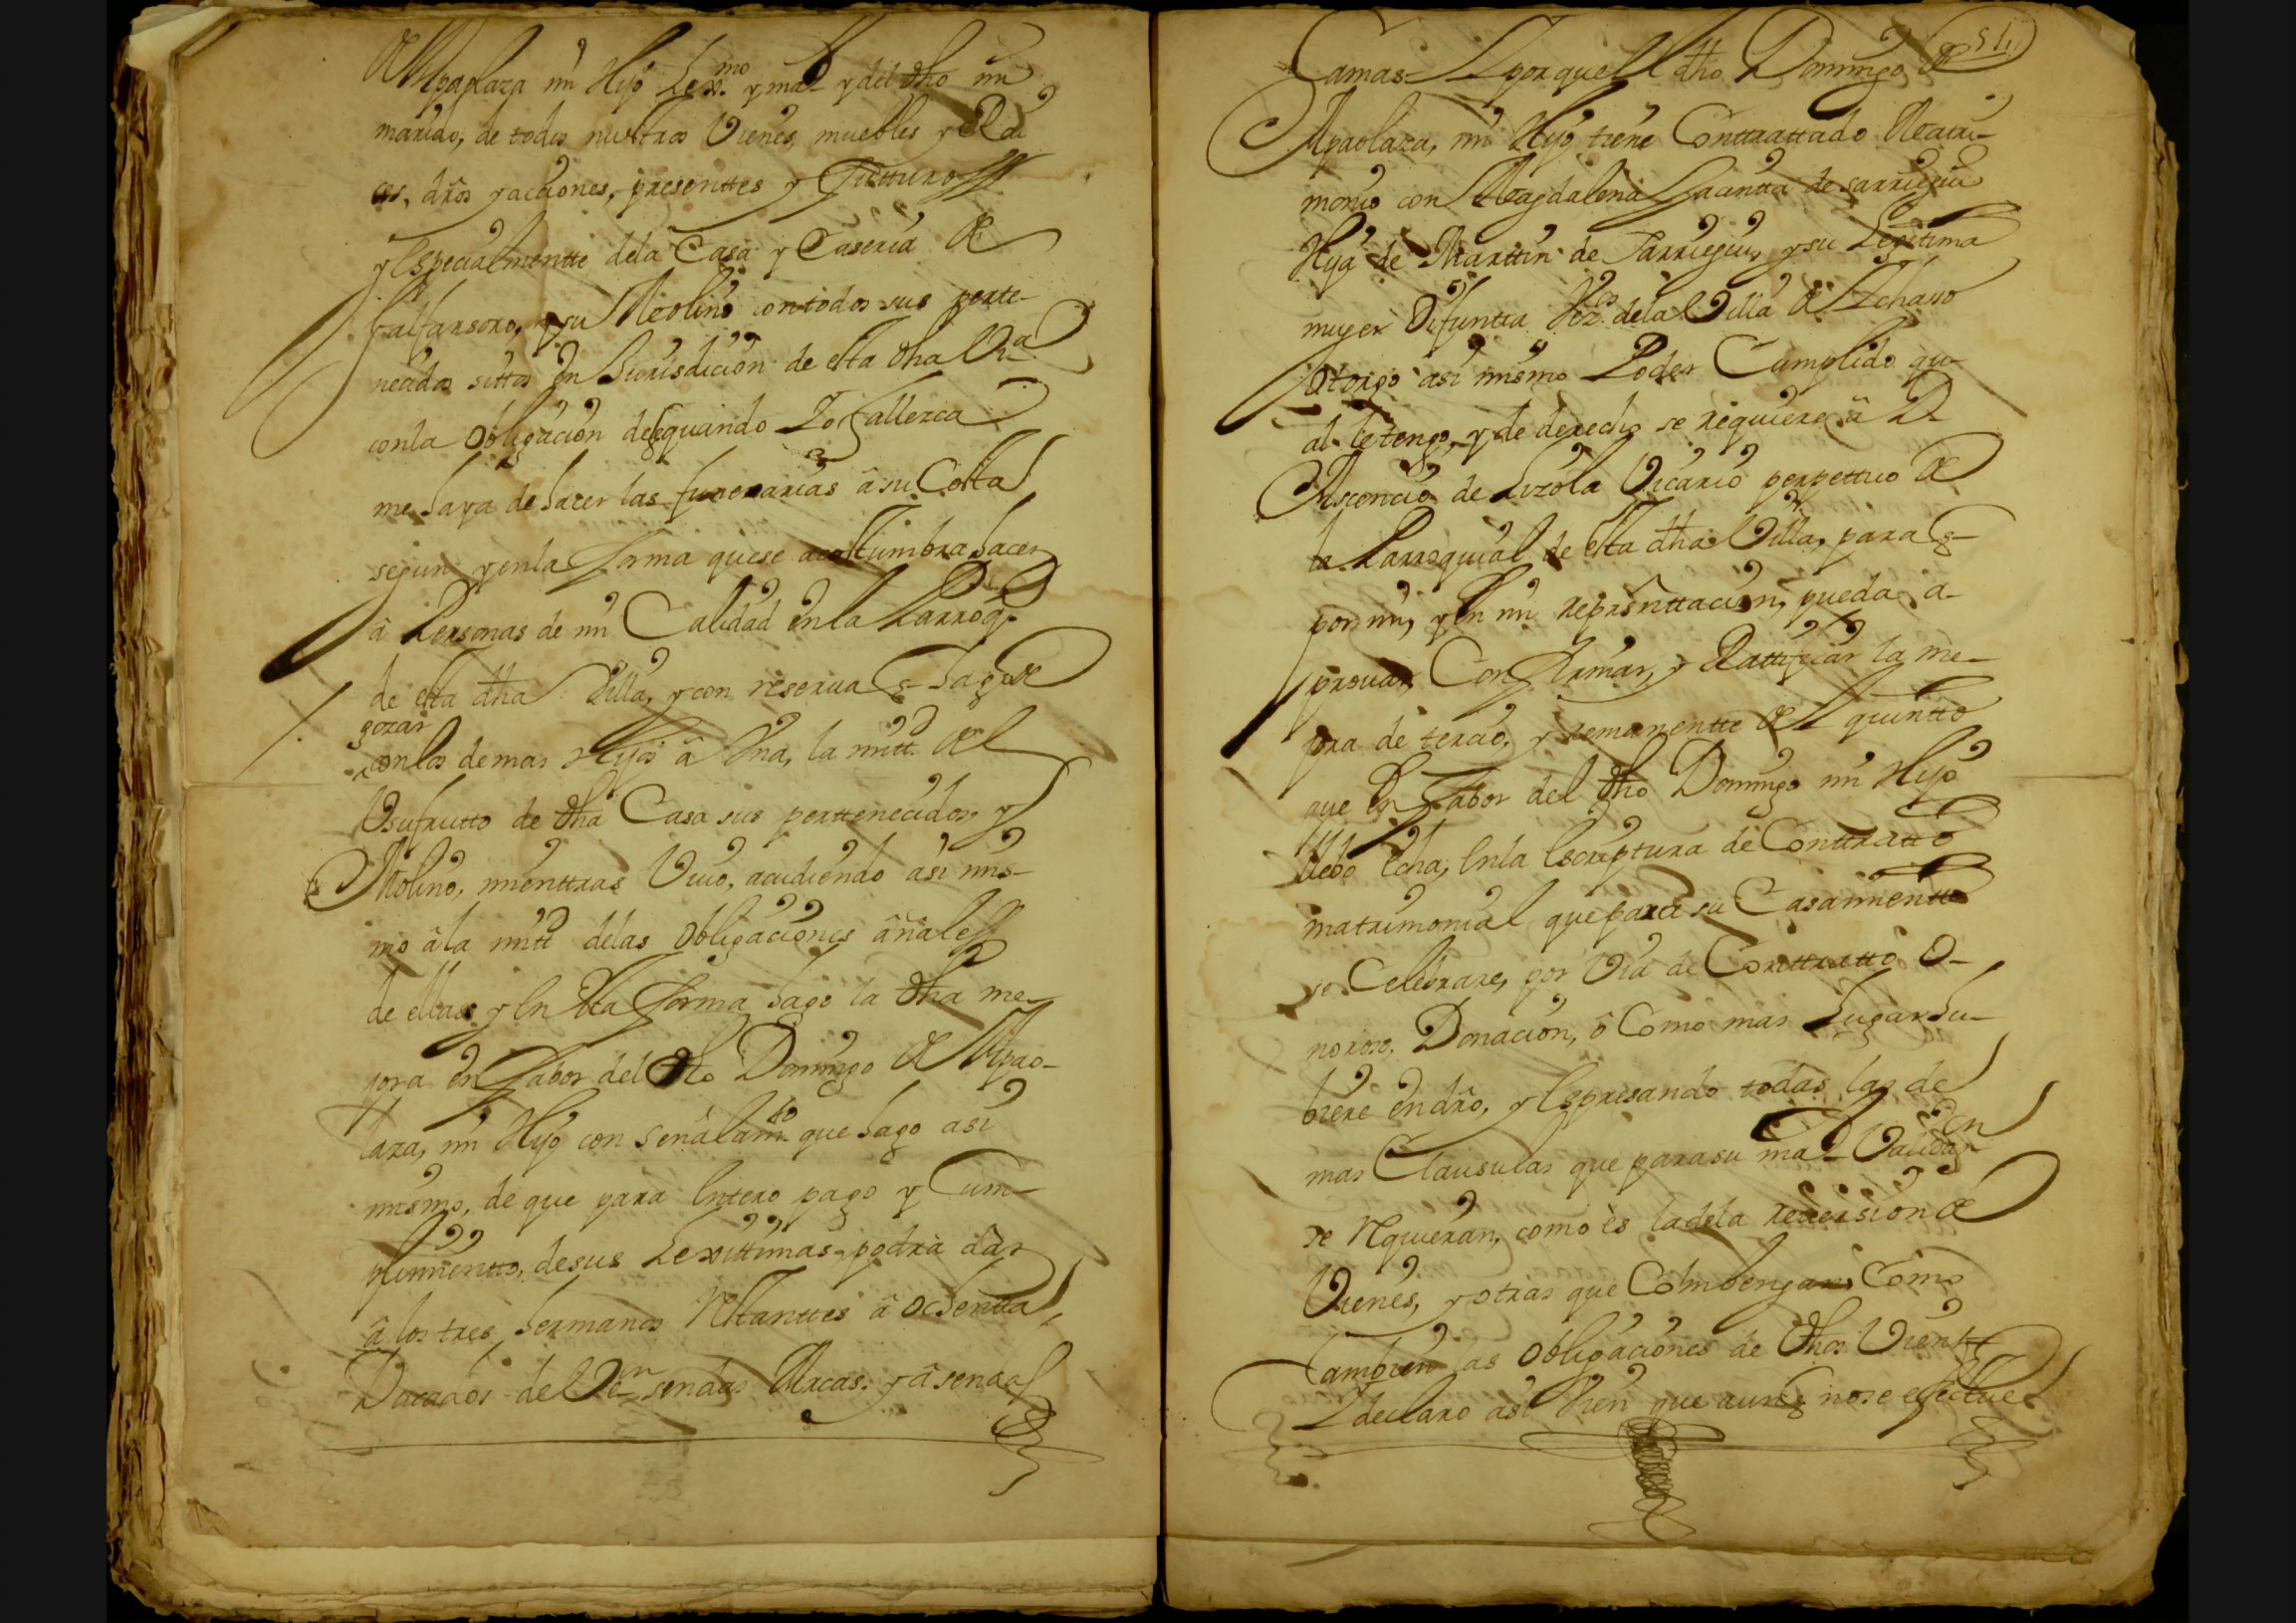 Apaolaza mi Hijo Lexmo. y mal y del dho mi
marido, de todos nuestros Vienes, muebles y Rai
ces, dros y acciones, presenttes y Futturos
y Especialmentte dela Casa y Caseria de
su Molino con todos sus perte-
necidos sittos En Jurisdicion de esta dha Va
con la Obligacion de q quando Yo fallezca
me haya de hacer las funerarias â su Costa
segun y en la forma que se acostumbra hacer
â Personas de mi Calidad en la Parroq.
de esta dha Villa, y con reserva q hago de
gozar
con los demas Hijos â Una, la mitt. del
Usufrutto de dha Casa sus perttenecidos, y
Molino, mienttras Vivo, acudiendo asi mis-
mo â la mitt delas Obligaciones âñales
de ellas y En esta forma hago la dha me-
jora en fabor del dho Domingo de Apao-
laza, mi Hijo con Señalamto que hago asi
mismo, de que para Entero pago y Cum-
plimientto, de sus Lexittimas podra dar
â los tres hermanos Restanttes â ochentta
Ducados de Von sendas Arcas, y â sendas
Camas = Y por que el dho Domingo de
Apaolaza, mi Hijo tiene Conttrattado Matri-
monio con Magdalena Jacintta de Sarriegui
Hija de Marttin de Sarriegui, y su Legitima
muger Difuntta Vezos. dela Villa de Ichaso
Otorgo asi mismo Poder Cumplido qu-
al le tengo, y de derecho se requiere â Dn
Asconcio de Lizola Vicario perpettuo de
la Parroquial de esta dha Villa, para q-
por mi, y En mi reprsnttacion, pueda a-
provar, Confirmar, y Rattificar la me-
jora de tercio, y remanentte del quintto
que En fabor del dho Domingo mi Hijo
llebo Echa, En la Escriptura de Conttratto
matrimonial que para su Casamientto
se Celebrare, por Via de Conttratto O-
noroso, Donacion, ô Como mas Lugar hu-
biere en dro, y Espresando todas las de
mas Clausulas que para su mal Validaon
se Requieran, como ès la dela reversion de
Vienes, y otras que Combengan, Como
Tambien las Obligaciones de dhos Vienes
Y declaro asi Vien que aunq no se efectue